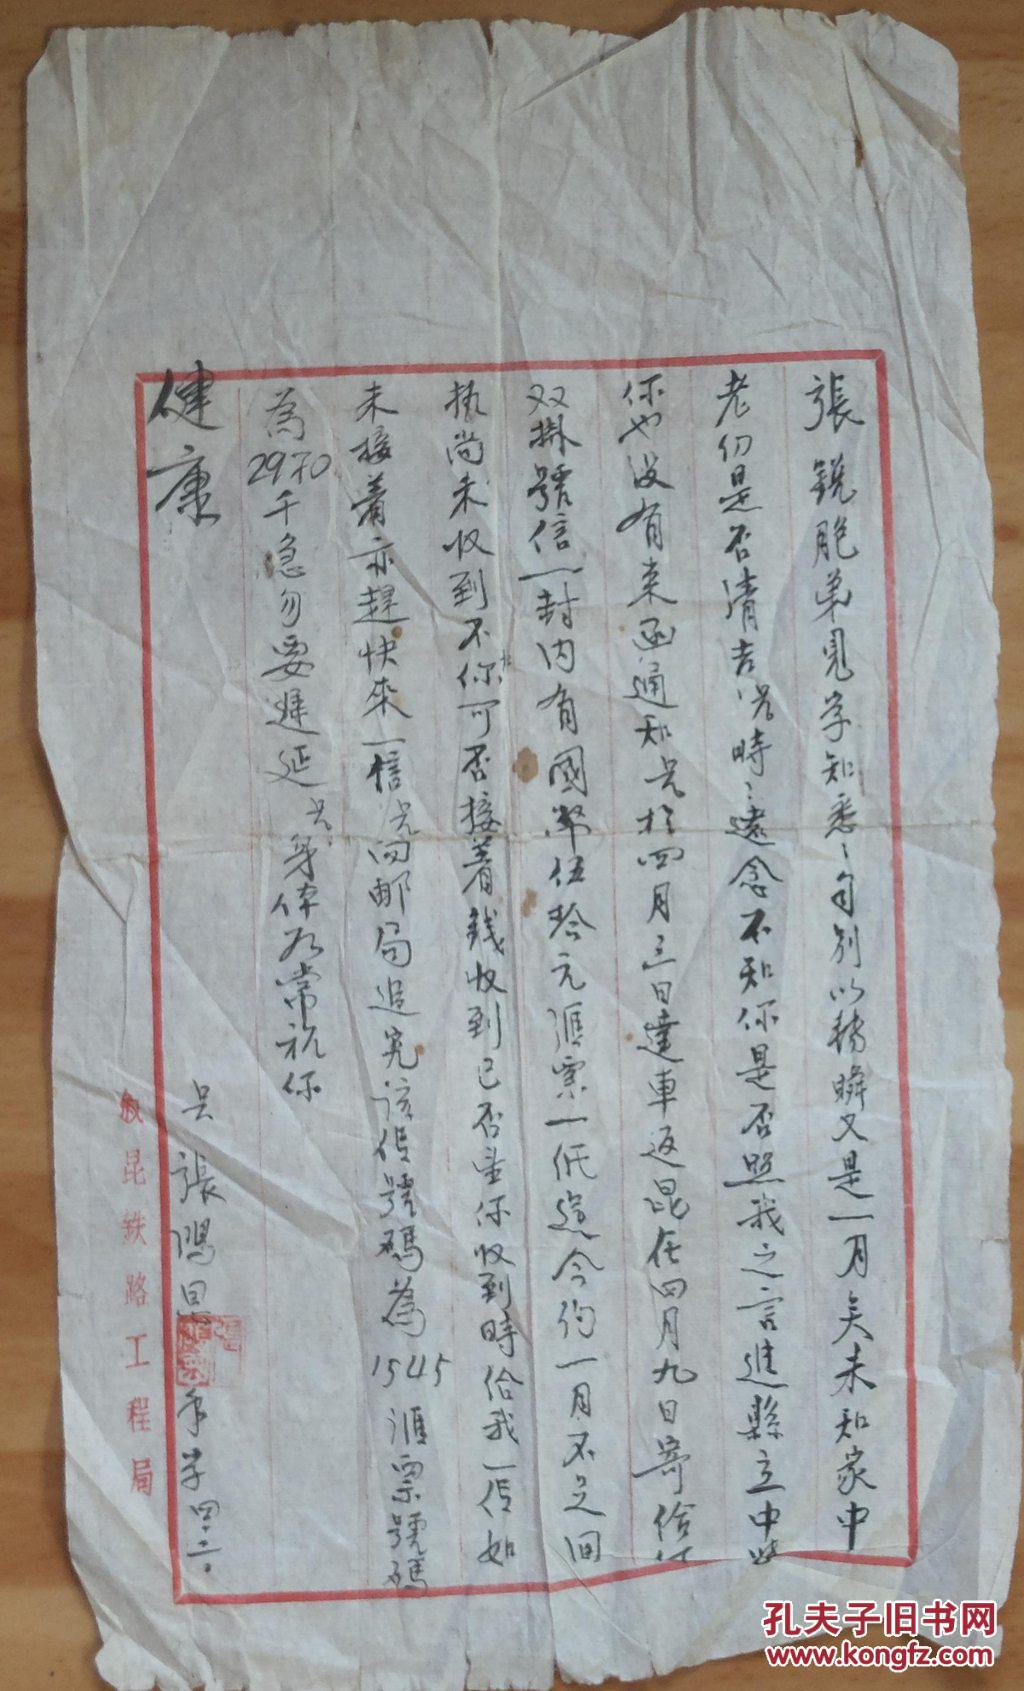 張銳胞弟見字知悉：自別以轉瞬又是一月矣未知家中
老幼是否清吉兄時：遠念不知你是否照我之言進縣立中
你也沒有來函通知兄於四月三日達車返昆在四月九日寄給
双掛號信一封内有國幣伍拾元滙票一低這今約一月不足回
执尚未收到不你可否接着錢收到已否望你收到時给我一信如
未接着亦趕快來一信兄向郵局追究该信號碼為1545滙票號碼
為2970千急勿要遲延兄身体如常祝你
健康
兄 張鴻恩 手字 四.二.
敘昆鉄路工程局
孔夫子旧书网
www.kongfz.com